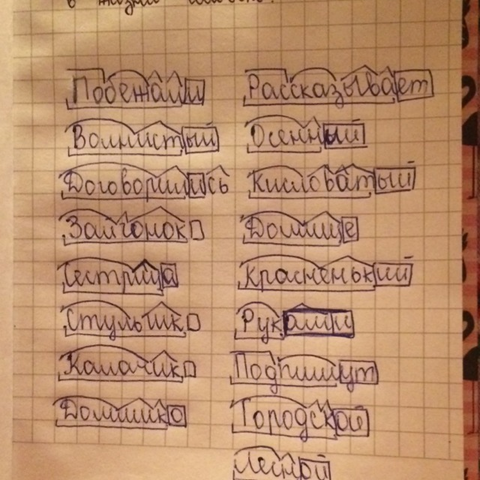 в жизни
Побежали
Волнистый
Договорились
Зайчонок
Сестрица
Стульчик
Калачик
Домишко
Рассказывает
Осенний
Кисловатый
Домище
Красненький
Руками
Подпишут
Городской
Лесной